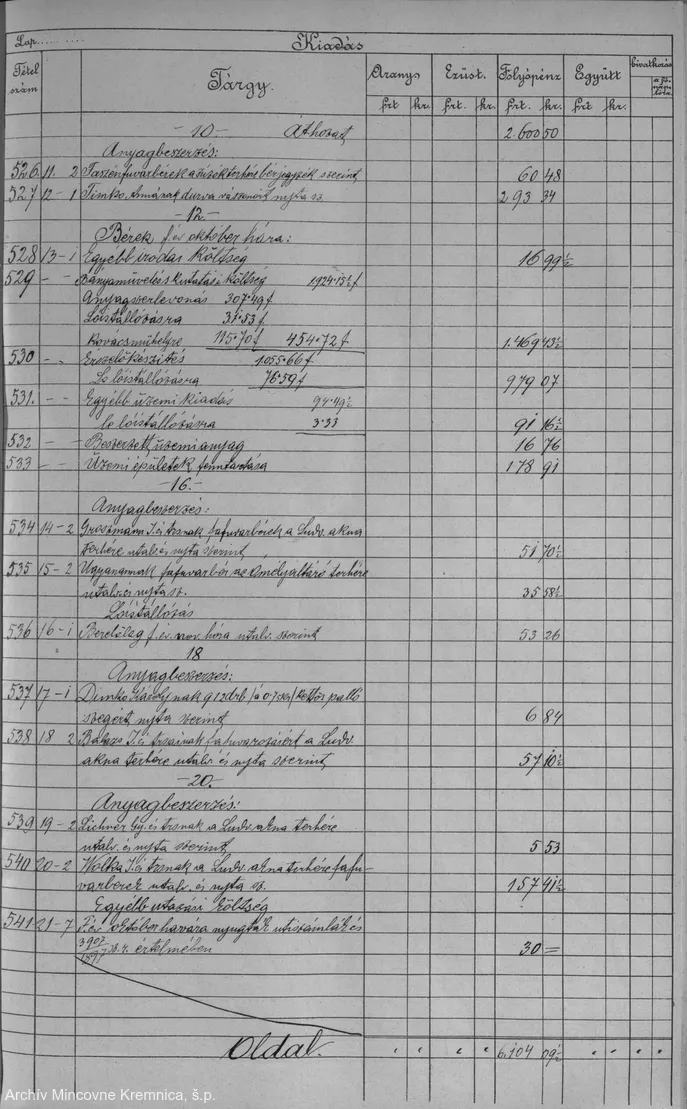 Lap.......... Kiadás
Tétel szám Tárgy. Arany Ezüst. Folyópénz Együtt hivatkozás
frt kr. frt. kr. frt. kr. frt. kr.
-10.- Áthozat, 2.600 50
Anyagbeszerzés:
526 11. 2 szerint, 60 48
527 12-1 Timko Annának durva nyjta sz. 293 34
-12-
Bérek f. év október hóra:
528 13-1 Egyébb irodai költség 16 99½
529 - - Bányamüvelés kutatási költség 1924·15½ f
Anyagverlevonás 307·49 f.
Lóistállózásra 31·53 f.
Kovácsműhelyre 115·70 f 454·72 f. 1.469 43½
530 - - Érczelőkészités 1055·66 f
Le lóistállózásra 76·59 f 979 07
531. - - Egyébb üzemi kiadás 94·49½
le lóistállózásra 3·33 91 16½
532 - - Beszerzett üzemi anyag 16 76
533 - - Üzemi épületek fenntartása 178 91
-16.-
Anyagbeszerzés:
534 14-2 Groszmann J. és trsnak fafuvarbérek a Ludv. akna
terhére utalv. és nyjta szerint, 51 70½
535 15-2 Ugyanannak fafuvarbér az terhére
utalv. és nyjta sz. 35 58½
Lóistállózás
536 16-1 f. év nov. hóra utalv. szerint 53 26
18
Anyagbeszerzés:
537 17-1 Dimko Károlynak 912 drb /á 0·75 kr/ kettős palló
szegért, nyjta szerint 6 84
538 18 2 Balazs J. és trsainak fafuvarozásért a Ludv.
akna terhére utalv. és nyjta szerint, 57 10½
-20.-
Anyagbeszerzés:
539 19-2 Lichner Gy. és trsnak a Ludv. akna terhére
utalv. és nyjta szerint, 5 53
540 20-2 Wolka J. és trsnak a Ludv. akna terhére fafu-
varbérek utalv. és nyjta sz. 157 41½
Egyébb utazási költség
541 21-7 F. év október havára nyugták utiszámlák és
3907/1897 sz. r. értelmében 30 =
Oldal. 6.104 09½
Archív Mincovne Kremnica, š.p.